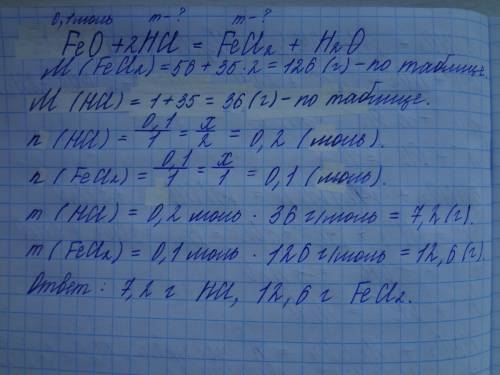 0,1 моль m-? m-?
FeO + 2HCl = FeCl₂ + H₂O
M (FeCl₂) = 56 + 35 · 2 = 126 (г) - по таблице.
M (HCl) = 1 + 35 = 36 (г) - по таблице.
n (HCl) = 0,1/1 = x/2 = 0,2 (моль).
n (FeCl₂) = 0,1/1 = x/1 = 0,1 (моль).
m (HCl) = 0,2 моль · 36 г/моль = 7,2 (г).
m (FeCl₂) = 0,1 моль · 126 г/моль = 12,6 (г).
Ответ: 7,2 г HCl, 12,6 г FeCl₂.